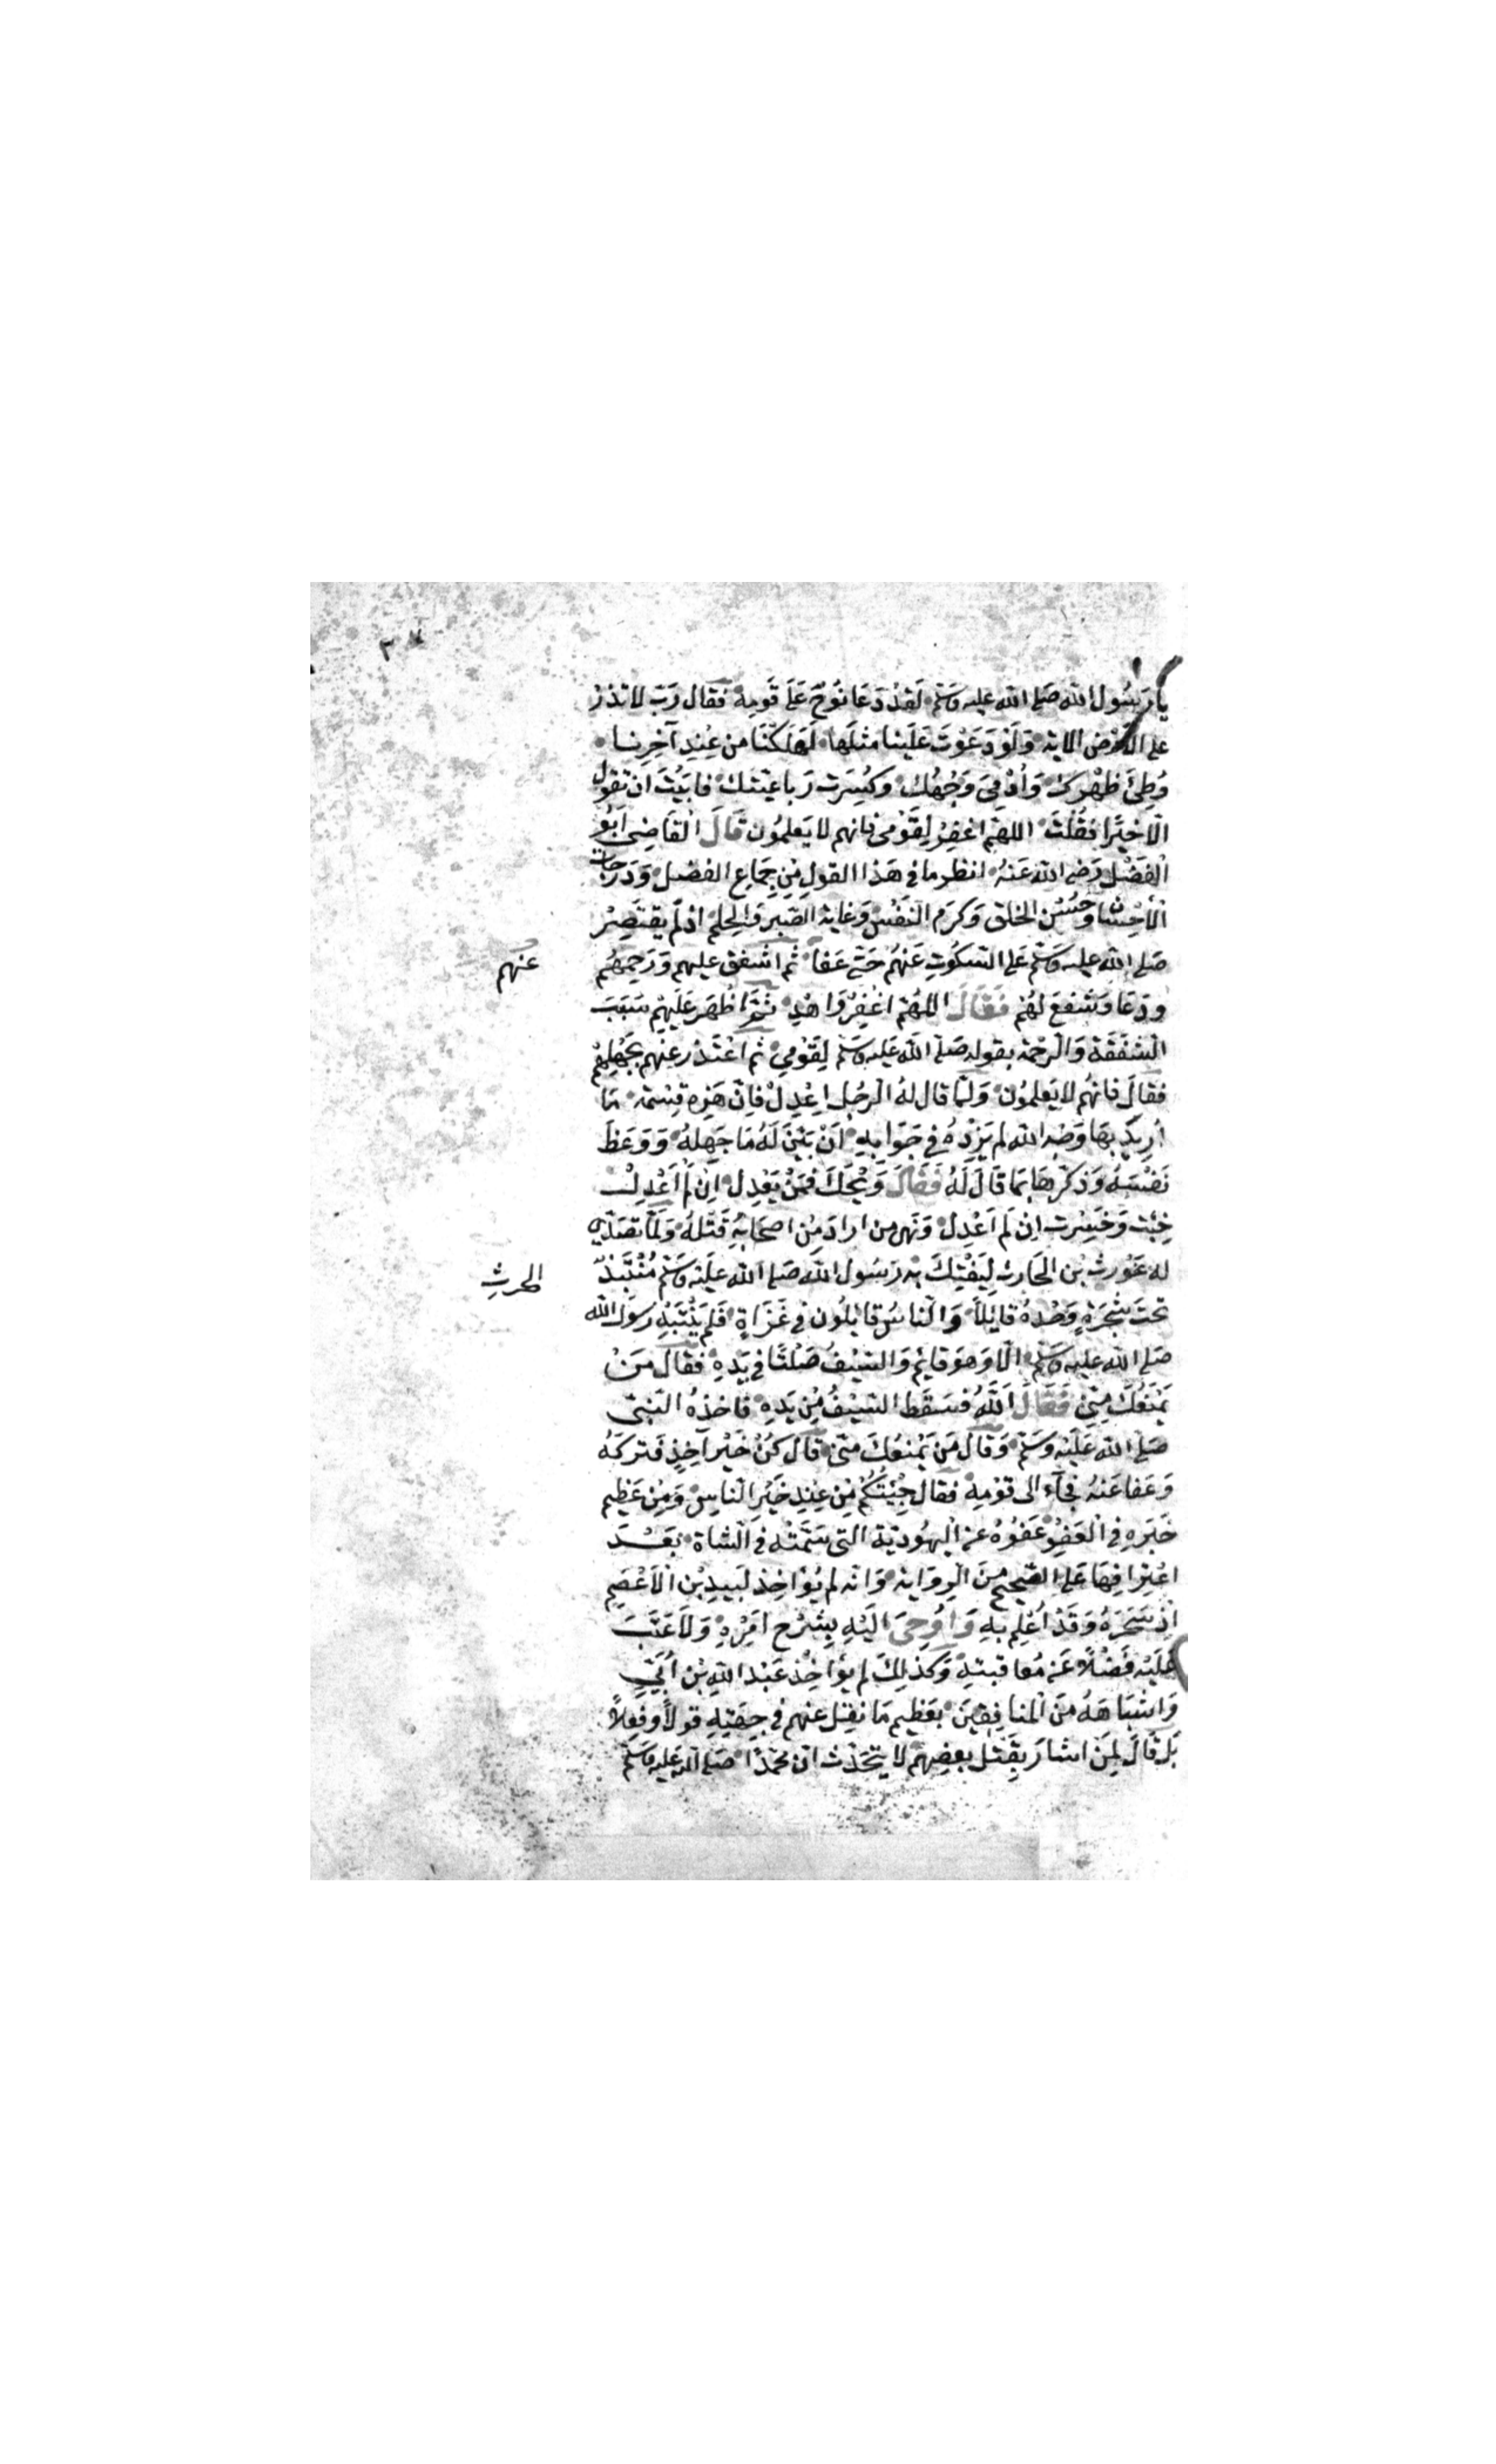 يا رَسُول الله صَلى الله عليه وسَلم لَقدْ دَعَا نُوحٌ عَلَى قَومِه فقال رَبّ لا تذرْ
على الارْض الايه وَلَوْ دَعَوْتَ عَلَينا مثلَها لَهَلَكْنَا من عِندِ آخِرِنا
وُطِئَ ظَهْرك وَاُدْمِىَ وَجْهُك وكُسِرَت رَباعيَتك فابَيْتَ ان تقول
الّا خيْرًا فقُلْتَ اللهمّ اغفِرْ لِقَوْمى فانهم لا يَعلمُون قَالَ القَاضِى اَبُو
الفَضْل رَضى الله عَنهُ انظر ما فى هَذا القول مِن جِمَاعِ الفضل وَدَرجات
الاحْسَان وَحُسْن الخلق وَكرَم النَفْس وَغاية الصّبر وَالحِلم اذ لَم يقتَصِرْ
صَلى الله عليه وَسَلّم عَلى السّكُوتِ عَنهُم حَتّى عَفا ثُم اشفق عليهم وَرَحِمَهُم
عنهم
وَدَعَا وَشَفعَ لهُمْ فَقَالَ اللهُمّ اغْفِرْ وَاهْدِ ثمّ اظْهَر عَلَيْهِم سَبَبَ
الشفَقَة وَالرّحمَة بقوله صَلّى الله عَليه وسَلم لِقَوْمِى ثم اعْتَذَر عنهم بجَهْلِهِمْ
فقالَ فانهُم لا يَعلمُون وَلمّا قال لهُ الرجُل اِعْدِلْ فاِنّ هَذِه قِسْمَة مَا
اُرِيدَ بهَا وَجْه الله لم يَزِدْهُ فى جَوَابِهِ اَنْ بَيّنَ لَهُ مَا جَهِلهُ وَوَعَظَ
نَفْسَهُ وَذكّرهَا بمَا قَالَ لَهُ فَقَالَ وَيْحَكَ فمَنْ يَعْدِل اِن لم اَعْدِلْ
خِبْتَ وَخَسِرْتَ اِن لم اَعْدِلْ وَنهَى من ارادَ مِن اصحَابِهِ قَتْلهُ وَلَمّا تصَدّى
له غَوْرث بن الحَارِث لِيَفْتِكَ به رَسُول الله صَلى الله عَليْه وسَلّم مُنْتَبِذ
الحرثِ
تحتَ شَجَرَةٍ وَحْدهُ قايلاً وَالناسُ قايلُون فى غَزَاةٍ فلم يَنْتَبِهْ رَسُول الله
صَلى الله عليه وسَلم الّا وَهوَ قايم وَالسّيْفُ صَلْتًا فى يَدِهِ فقال مَنْ
يَمْنَعُكَ مِنّى فَقَالَ اللهُ فسَقَط السّيْفُ مِن يَدِهِ فاخذهُ النّبى
صَلى الله عَليْه وسَلّم وَقال مَن يَمْنعُكَ منّى قال كُنْ خَيْر آخِذٍ فَتركَهُ
وَعَفا عَنهُ فجآء الى قومِهِ فقال جِئتُكُم مِن عِندِ خَيْر الناسِ وَمِن عَظِيم
خَبَرهِ فى الْعَفْوِ عَفْوُهُ عن اليهُوديّة التى سَمَّتْه فى الشاة بَعْدَ
اعْتِرَافِهَا عَلى الصّحِيحِ مِنَ الرِوَاية وَانّه لم يُؤاخِذ لَبيد بْن الاَعْصَمِ
اذ سَحَرَهُ وَقَدْ اُعْلِم بِهِ وَاُوحِىَ الَيْهِ بِشَرْح اَمْرِهِ وَلا عَتَبَ
عَلَيْه فَضْلاً عَن مُعاقبتهِ وَكَذلِكَ لم يؤاخِذْ عَبْد الله بْن اُبَىّ
وَاشبَاهَهُ مِنَ المنافِقِينَ بعَظِيم مَا نقِل عنهم فى جِهَتِهِ قولاً وفِعلاً
بَل قالَ لِمَن اشارَ بِقَتْل بعضِهِم لا يتحَدّث انّ محمّدًا صَلى الله عَليه وسَلم